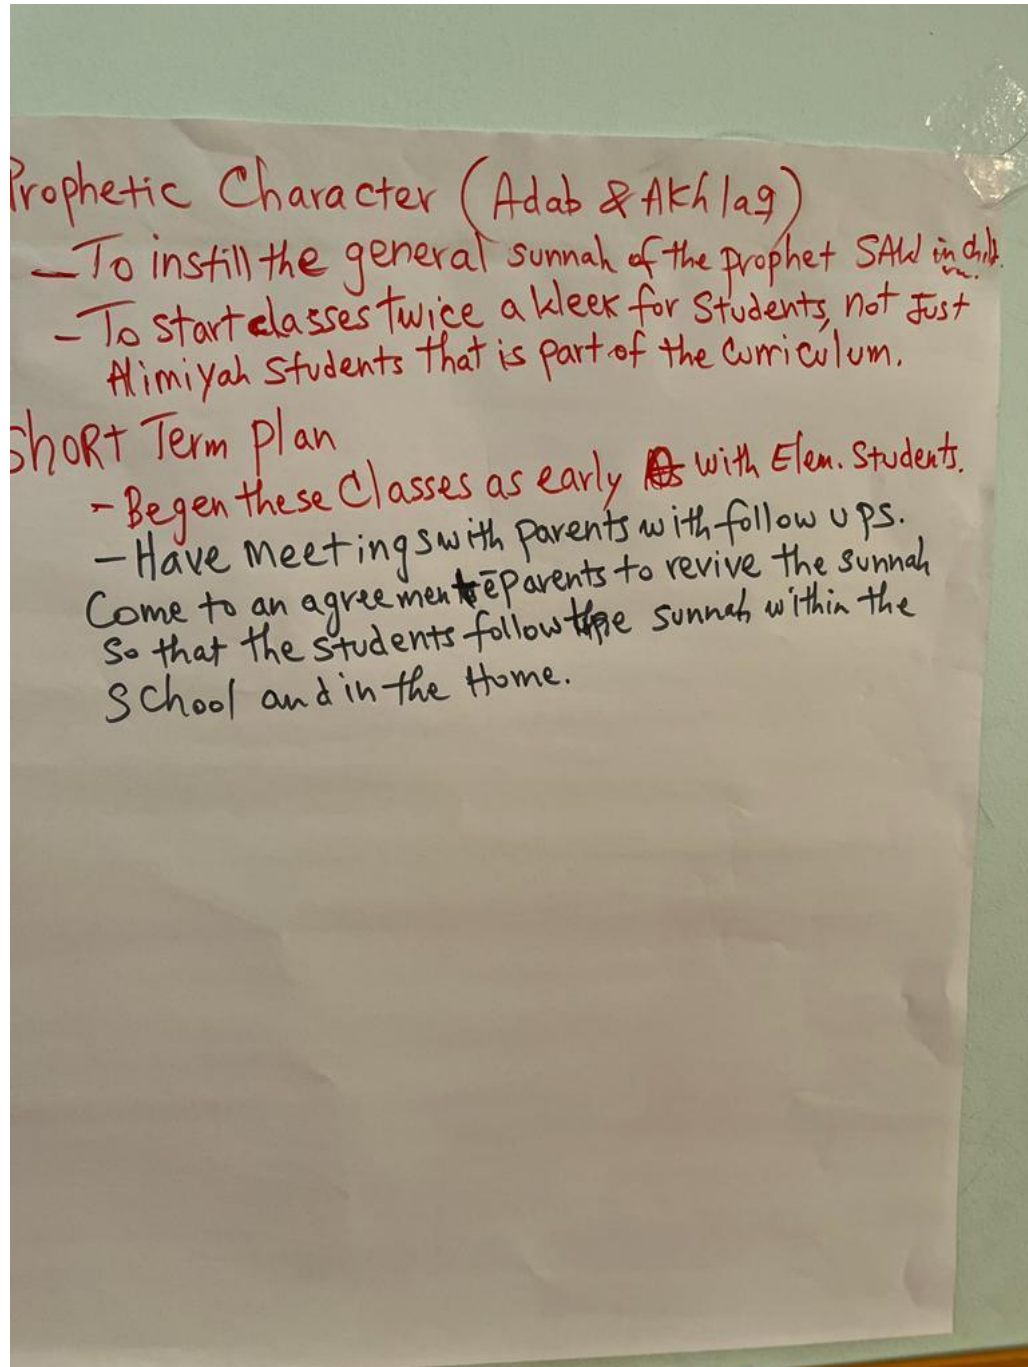 Prophetic Character (Adab & Akhlaq)
- To instill the general sunnah of the prophet SAW in child
- To start classes Twice a week for Students, not Just
Alimiyah Students that is part of the curriculum.
Short Term plan
- Begen these Classes as early As with Elem. Students.
- Have meetings with parents with follow ups.
Come to an agreement c̄ parents to revive the sunnah
So that the students follow the sunnah within the
School and in the Home.